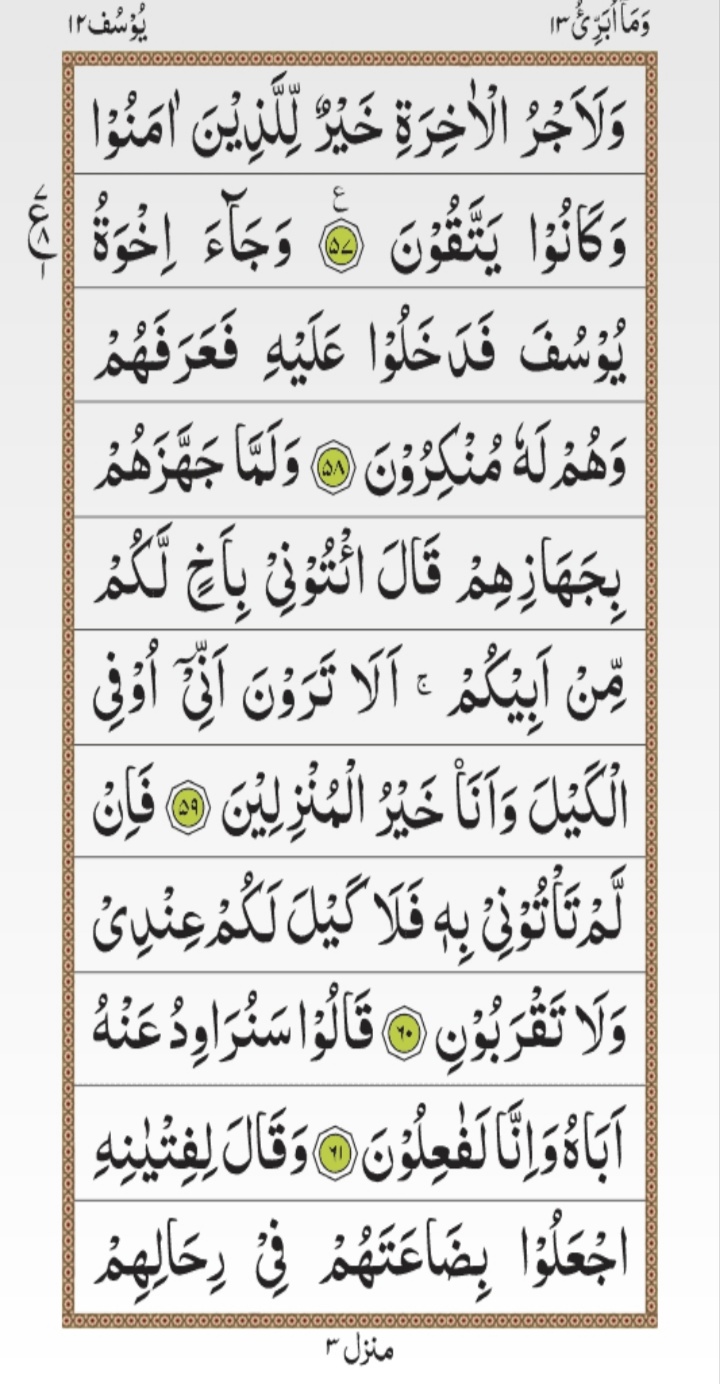 وَمَاۤ اُبَرِّئُ ١٣
يُوْسُف ١٢
وَلَاَجْرُ الْاٰخِرَةِ خَيْرٌ لِّلَّذِيْنَ اٰمَنُوْا
وَكَانُوْا يَتَّقُوْنَ ۵۷ ع وَجَآءَ اِخْوَةُ
٧ ع ٨ ١
يُوْسُفَ فَدَخَلُوْا عَلَيْهِ فَعَرَفَهُمْ
وَهُمْ لَهٗ مُنْكِرُوْنَ ۵۸ وَلَمَّا جَهَّزَهُمْ
بِجَهَازِهِمْ قَالَ ائْتُوْنِيْ بِاَخٍ لَّكُمْ
مِّنْ اَبِيْكُمْ ۚ اَلَا تَرَوْنَ اَنِّيْۤ اُوْفِي
الْكَيْلَ وَاَنَا۠ خَيْرُ الْمُنْزِلِيْنَ ۵۹ فَاِنْ
لَّمْ تَاْتُوْنِيْ بِهٖ فَلَا كَيْلَ لَكُمْ عِنْدِيْ
وَلَا تَقْرَبُوْنِ ٦٠ قَالُوْا سَنُرَاوِدُ عَنْهُ
اَبَاهُ وَاِنَّا لَفٰعِلُوْنَ ٦١ وَقَالَ لِفِتْيٰنِهِ
اجْعَلُوْا بِضَاعَتَهُمْ فِيْ رِحَالِهِمْ
منزل ٣